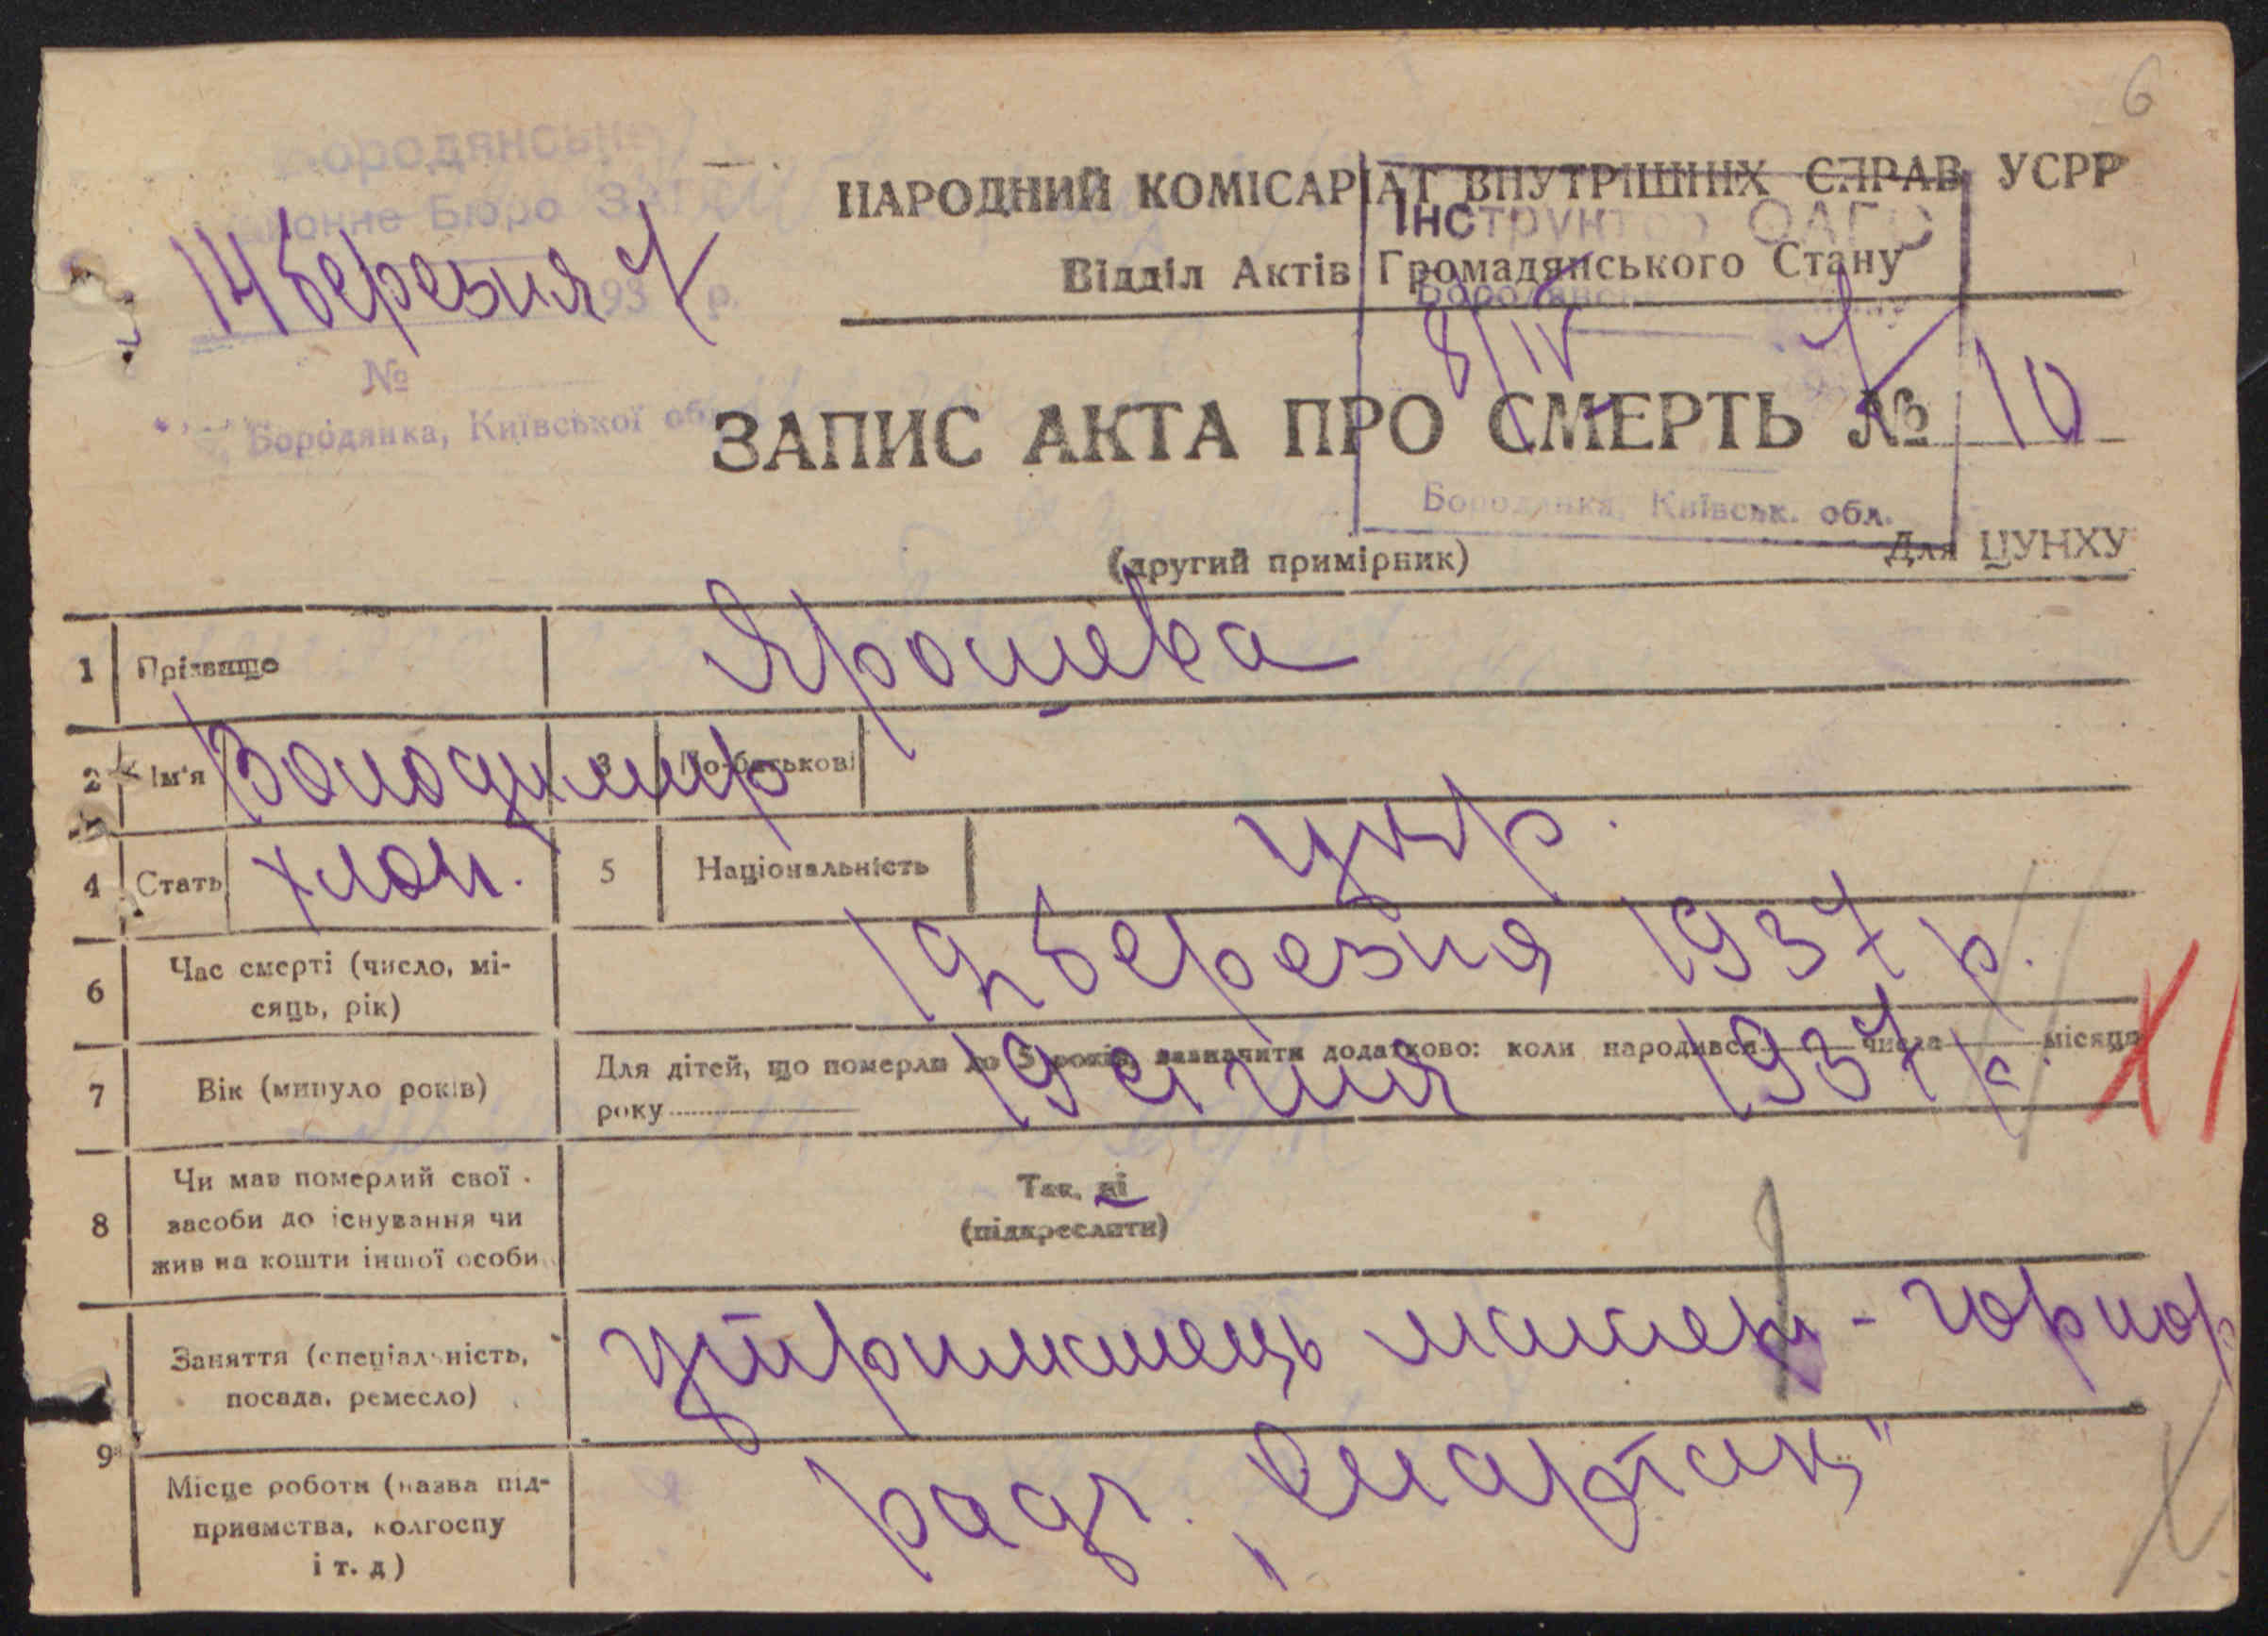 6
Бородянське
районне Бюро ЗАГС
14 березня 1937 р.
№
Бородянка, Київської обл.
НАРОДНИЙ КОМІСАРІАТ ВНУТРІШНІХ СПРАВ УСРР
Інструктор ОАГС
Відділ Актів Громадянського Стану
8/IV 7
ЗАПИС АКТА ПРО СМЕРТЬ № 10
Бородянка, Київськ. обл.
(другий примірник)
Для ЦУНХУ
1 Прізвище Ярошева
2 Ім'я Володимир 3 По-батькові
4 Стать хлоп. 5 Національність укр.
6 Час смерті (число, мі-
сяць, рік)
12 березня 1937 р.
7 Вік (минуло років)
Для дітей, що померли до 5 років, зазначити додатково: коли народився числа місяця
року
19 січня 1937 р.
XI
8 Чи мав померлий свої
засоби до існування чи
жив на кошти іншої особи
Так, ні
(підкреслити)
9 Заняття (спеціальність,
посада, ремесло)
утриманець матері - чорнор
Місце роботи (назва під-
приємства, колгоспу
і т. д)
радг. „Спартак"